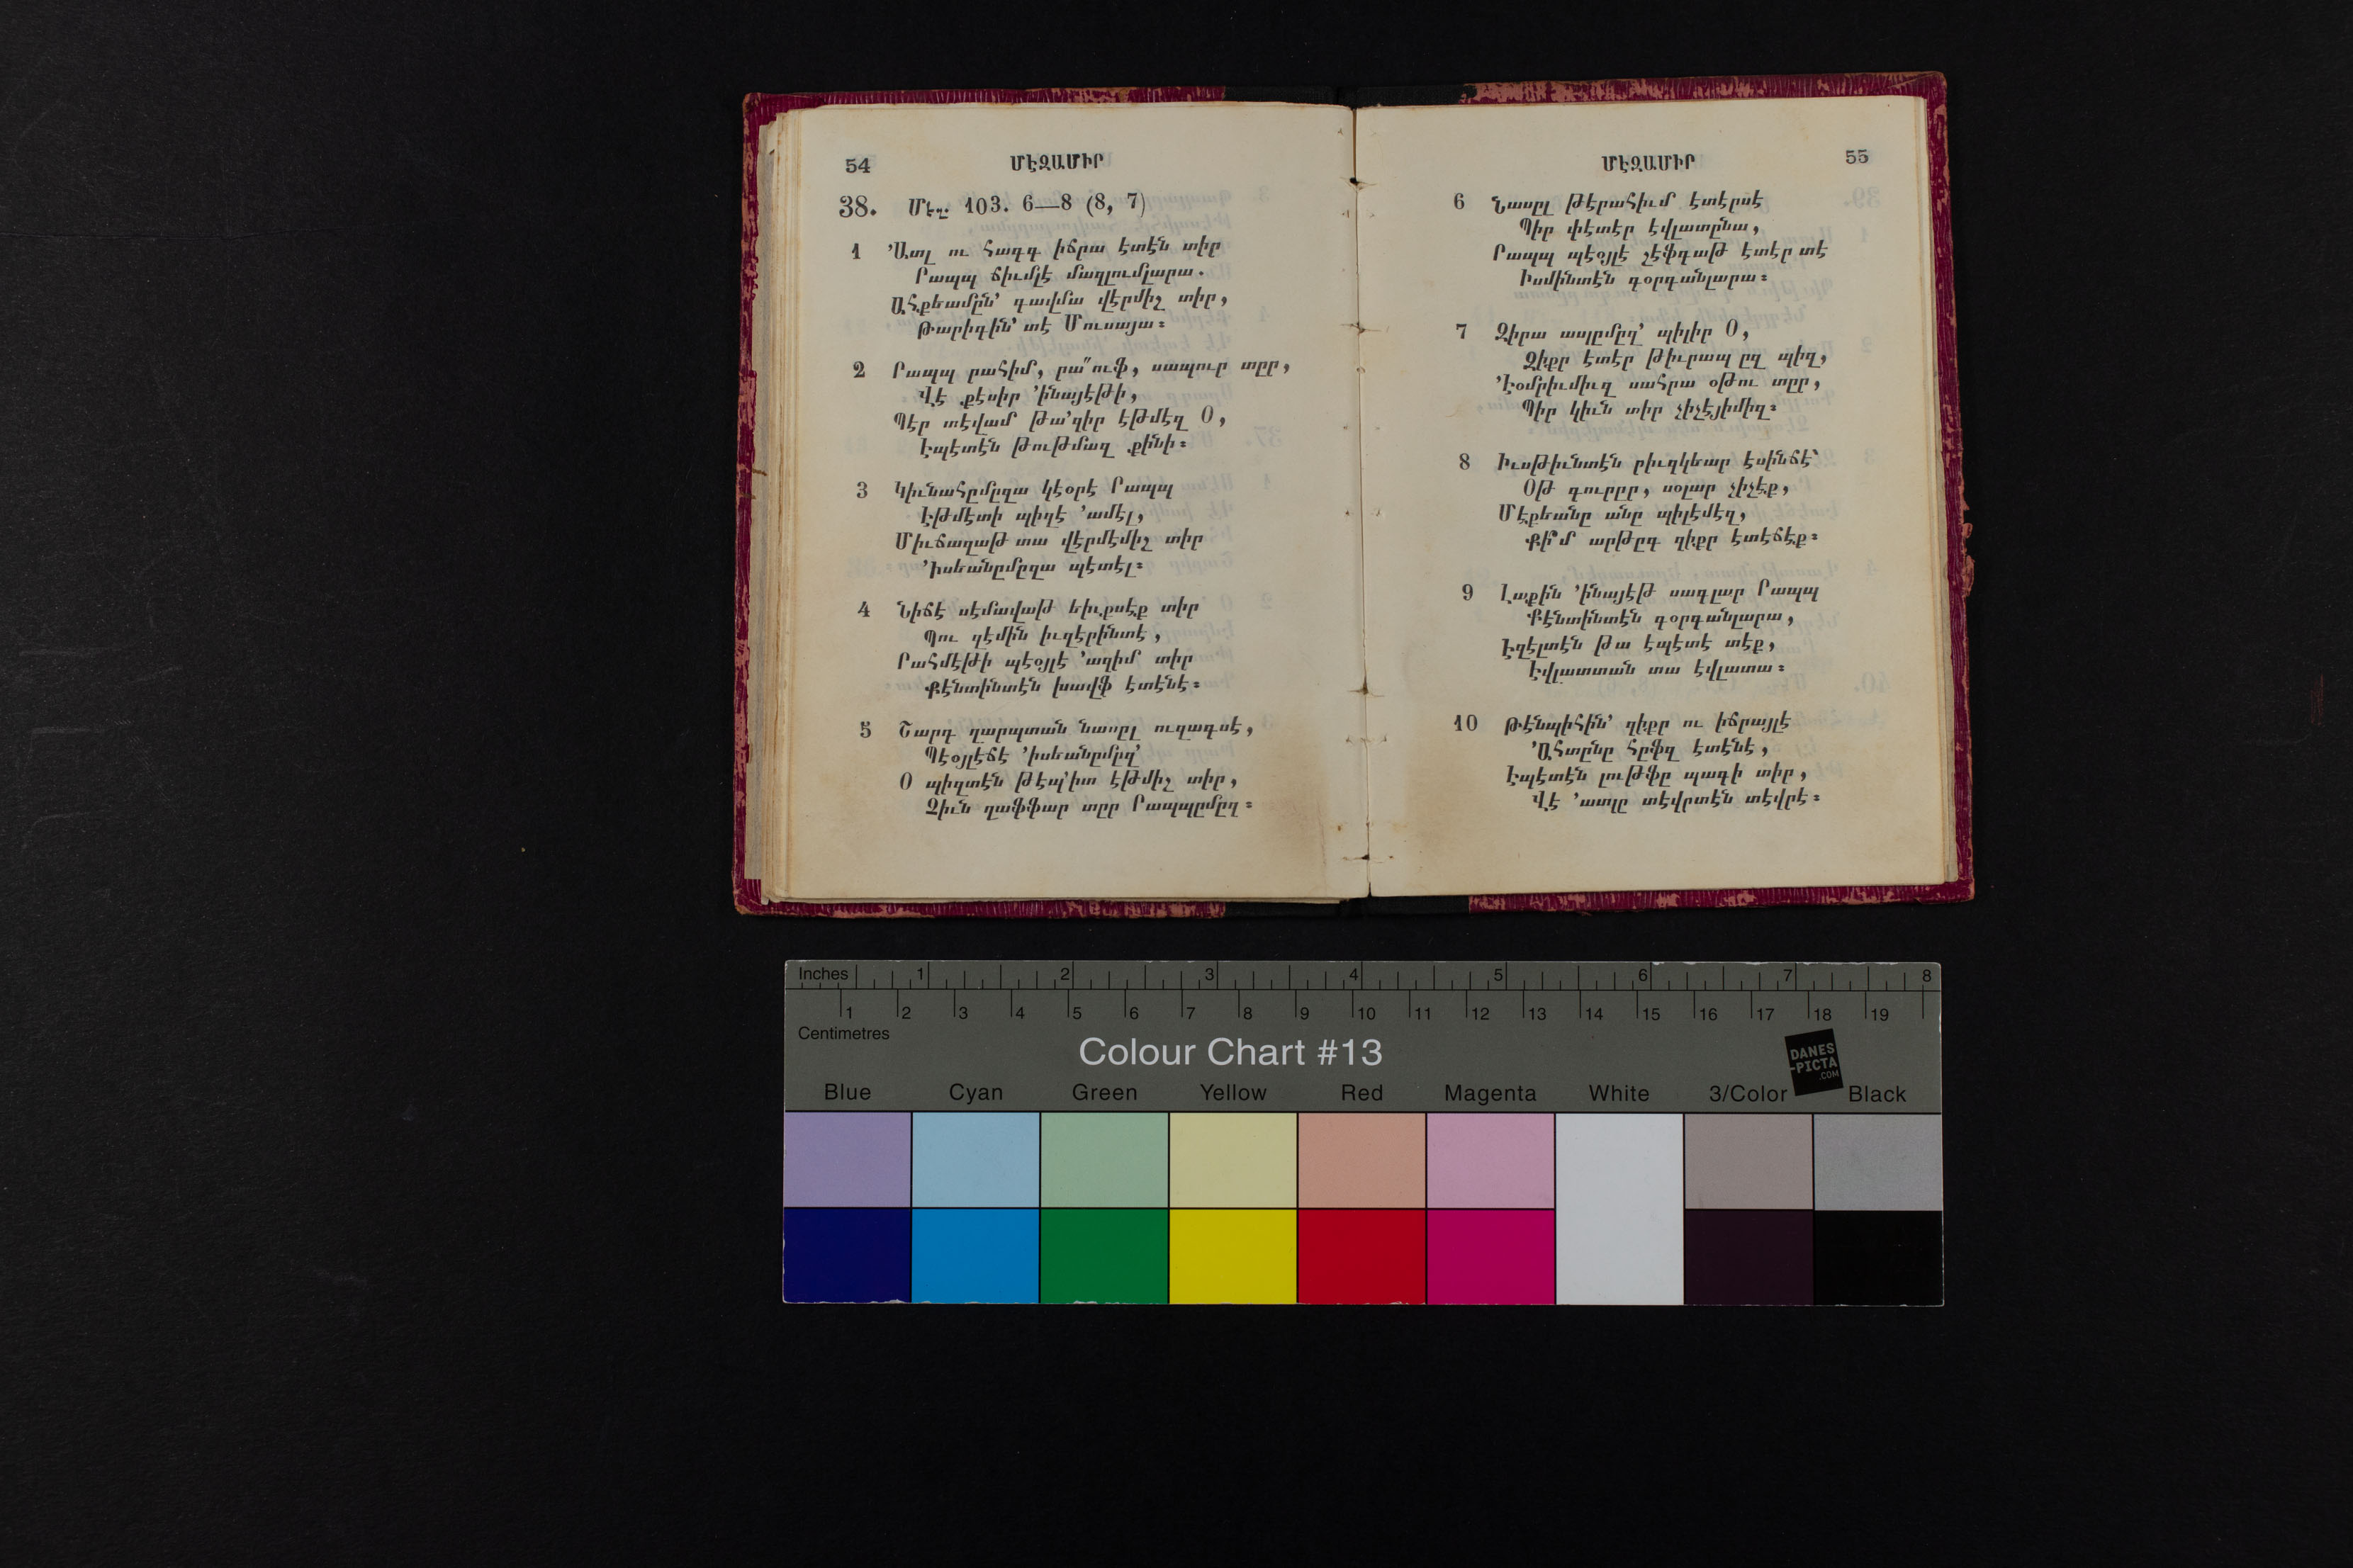 54 ՄԷԶԱՄԻՐ
38. Մէզ. 103. 6—8 (8, 7)
1 ՚Ատլ ու հագգ իճրա էտէն տիր
Րապպ ճիւմլէ մազլումլարա.
Ահքեամըն՚ գավմա վէրմիշ տիր,
Թարիգին՚ տէ Մուսայա։
2 Րապպ րահիմ, րա՚՚ուֆ, սապուր տըր,
Վէ քէսիր ՚ինայէթի,
Պէր տէվամ թա՚զիր էթմէզ Օ,
Էպէտէն թութմազ քինի։
3 Կիւնահըմըզա կէօրէ Րապպ
Էթմէտի պիզէ ՚ամէլ,
Միւճազաթ տա վէրմէմիշ տիր
՚իսեանըմըզա պէտէլ։
4 Նիճէ սէմավաթ եիւքսէք տիր
Պու զէմին իւզէրինտէ,
Րահմէթի պէօյլէ ՚ազիմ տիր
Քէնտինտէն խավֆ էտէնէ։
5 Շարգ ղարպտան նասըլ ուզագսէ,
Պէօյլէճէ ՚իսեանըմըզ՚
Օ պիզտէն թէպ՚իտ էթմիշ տիր,
Զիւն ղաֆֆար տըր Րապպըմըզ։
ՄԷԶԱՄԻՐ 55
6 Նասըլ թէրահիւմ էտէրսէ
Պիր փէտէր էվլատընա,
Րապպ պէօյլէ շէֆգաթ էտէր տէ
Իսմինտէն գօրգանլարա։
7 Զիրա ասլըմըզ՚ պիլիր Օ,
Զիքր էտէր թիւրապ ըզ պիզ,
՚Էօմրիւմիւզ սահրա օթու տըր,
Պիր կիւն տիր չիչէյիմիզ։
8 Իւսթիւնտէն րիւզկեար էսինճէ՝
Օթ գուրըր, սօլար չիչէք,
Մէքեանը անը պիլէմէզ,
Քի՞մ արթըգ զիքր էտէճէք։
9 Լաքին ՚ինայէթ սագլար Րապպ
Քէնտինտէն գօրգանլարա,
Էզէլտէն թա էպէտէ տէք,
Էվլատտան տա էվլատա։
10 Թէնպիհին՚ զիքր ու իճրայլէ
՚Ահտընը հըֆզ էտէնէ,
Էպէտէն լութֆը պագի տիր,
Վէ ՚ատլը տէվրտէն տէվրէ։
Inches 1 2 3 4 5 6 7 8
1 2 3 4 5 6 7 8 9 10 11 12 13 14 15 16 17 18 19
Centimetres
Colour Chart #13
DANES
-PICTA
.COM
Blue Cyan Green Yellow Red Magenta White 3/Color Black